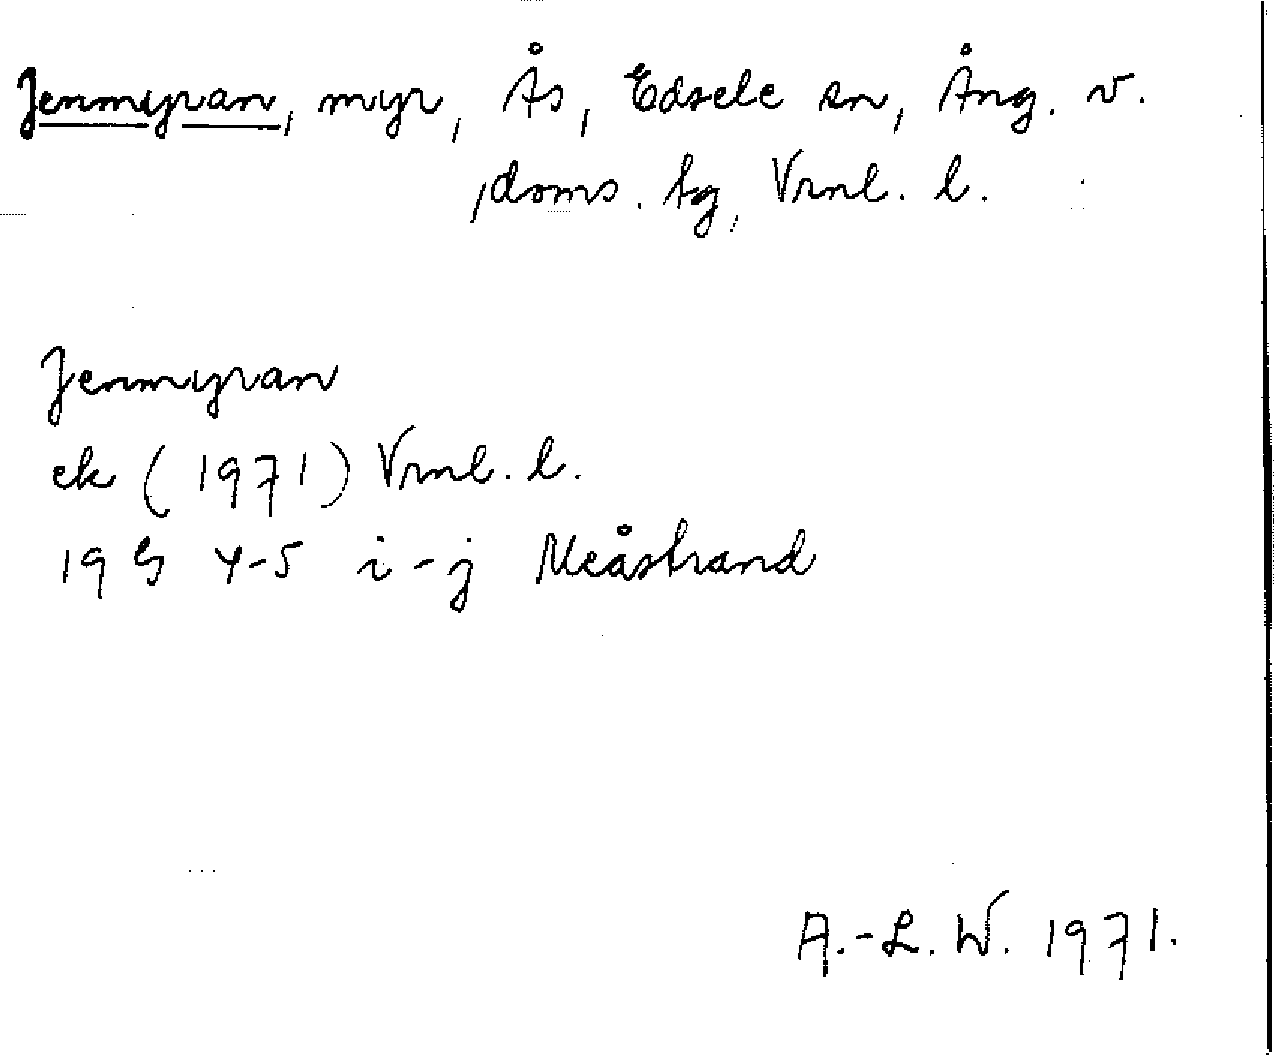 Jenmyran, myr, Ås, Edsele sn, Ång. v.
doms. tg, Vrnl. l.
Jenmyran
ek (1971) Vrnl. l.
19 G 4-5 i-j Meåstrand
A.-L. W. 1971.